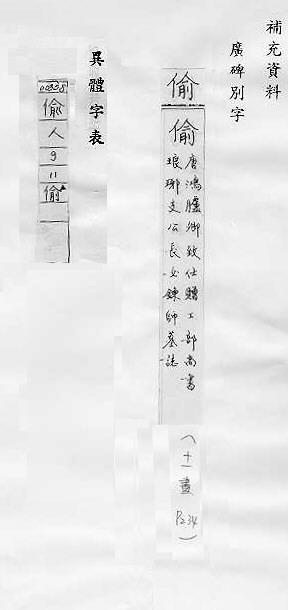 補充資料
廣碑別字
偷
偷
唐鴻臚卿致仕贈工部尚書
琅琊支公長女鍊師墓誌
(十一畫 P234)
異體字表
00338
偷
人
9
11
偷